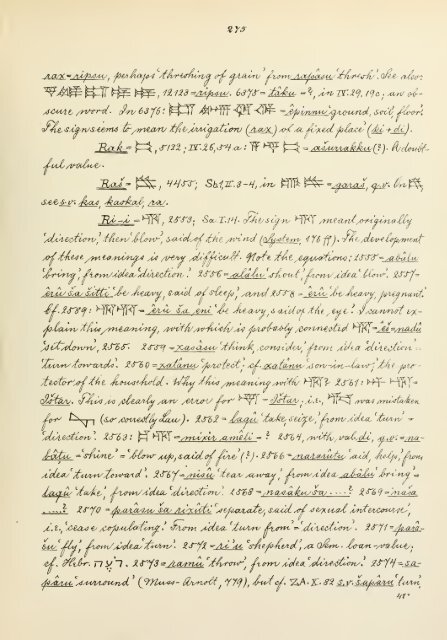 275
rax = ripsu, perhaps 'threshing of grain' from rapāsu 'thresh'. See also:
12123 = ripsu. 6375 = tâku = ?, in IV. 29, 19c; an ob-
scure word. In 6376: = êpinnu 'ground, soil, floor'.
The sign seems to mean the irrigation (rax) of a fixed place (ki + di).
Rak = 5122; IV. 26, 54 a: = ašurrakku (?). A doubt-
ful value.
Raš = 4455; Sb1, II. 3-4, in = garaš, q.v. On
see s.v. kas, kaskal, ra.
Ri-i = 2553, Sa I. 14. The sign meant originally
'direction', then 'blow', said of the wind (System, 176 ff). The development
of these meanings is very difficult. Note the equations: 2555 = abālu
'bring', from idea 'direction'. 2556 = alālu 'shout', from idea 'blow'. 2557 =
êrû ša šitti 'be heavy, said of sleep', and 2558 = êrû 'be heavy, pregnant'.
Cf. 2589: = êrû ša eni 'be heavy, said of the eye'. I cannot ex-
plain this meaning, with which is probably connected = nadû
'sit down', 2565. 2559 = xasāsu 'think, consider', from idea 'direction':
'turn towards'. 2560 = xatanu 'protect'; cf. xatānu 'son-in-law', 'the pro-
tector of the household'. Why this meaning with ? 2561:
Ištar. This is clearly an error for = Ištar; i.e., was mistaken
for (so correctly Lau). 2562 = laqû 'take, seize', from idea 'turn' =
'direction'. 2563: = mixir amêli = ? 2564, with val. di, q.v. = na-
bâtu = 'shine' = 'blow up, said of fire' (?). 2566 = nararûtu 'aid, help', from
idea 'turn toward'. 2567 = nišû 'tear away', from idea abālu 'bring' =
laqû 'take', from idea 'direction'. 2568 = nasāku ša ....? 2569 = nâa
....? 2570 = parāsu ša rixûti 'separate, said of sexual intercourse',
i.e., 'cease copulating.' From idea 'turn from' = 'direction'. 2571 = parā-
šu 'fly', from idea 'turn'. 2572 = ri'u 'shepherd', a Sem. loan-value,
cf. Hebr. רעה. 2573 = ramû 'throw', from idea 'direction'. 2574 = sa-
pāru 'surround' (Muss-Arnolt, 779), but cf. ZA. X. 82 s.v. šapāru 'turn'.